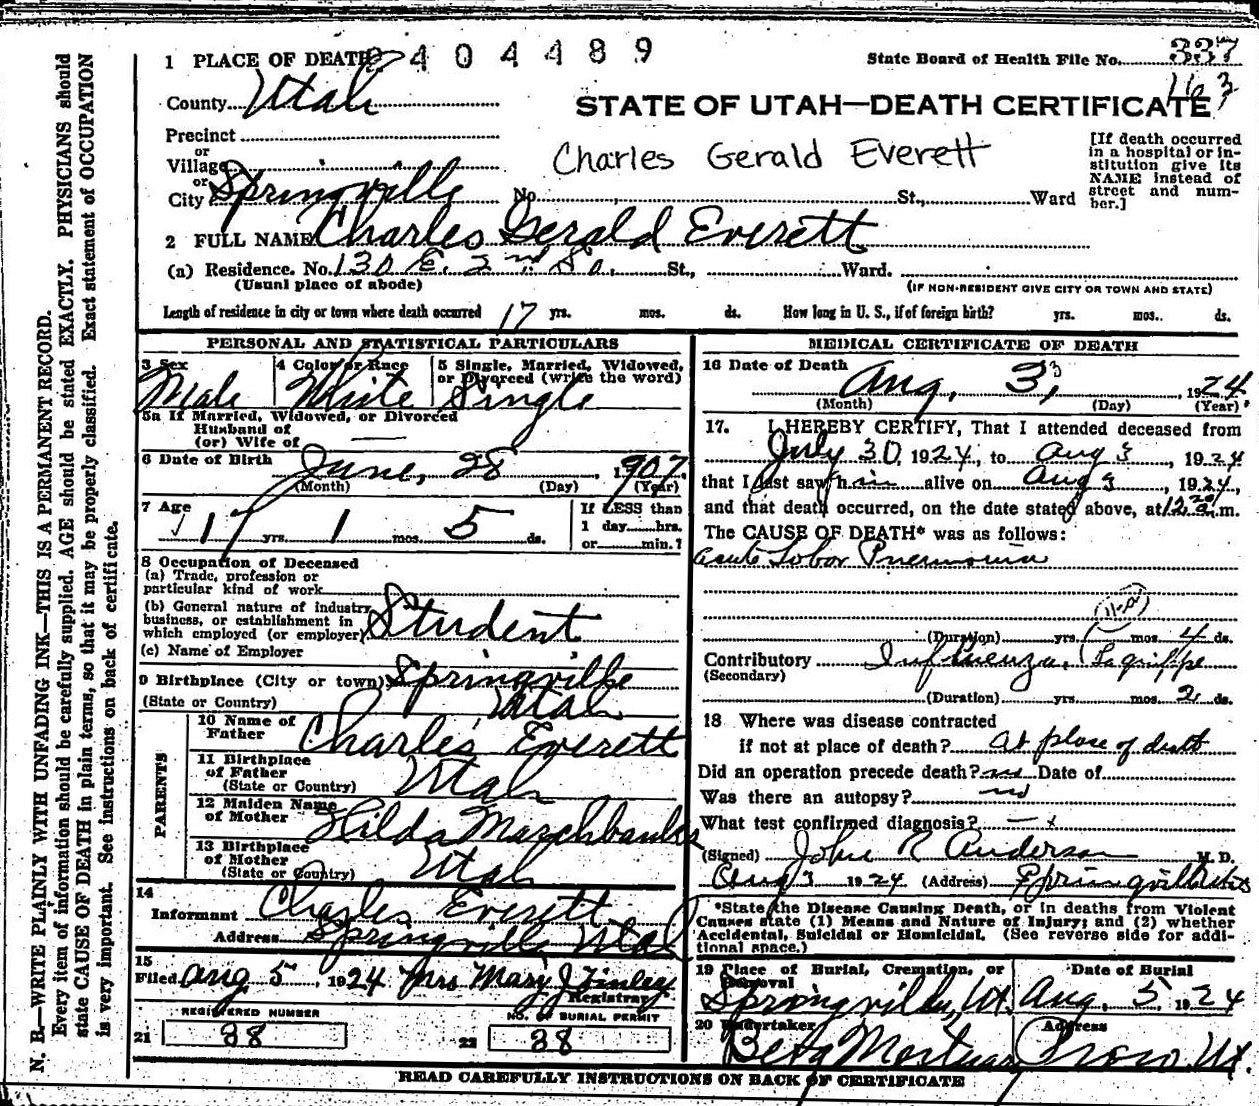 2404489
State Board of Health File No. 337
163
1 PLACE OF DEATH
County Utah
STATE OF UTAH—DEATH CERTIFICATE
Precinct
or
Village
or
City Springville
Charles Gerald Everett
[If death occurred in a hospital or institution give its NAME instead of street and number.]
No. St., Ward
2 FULL NAME Charles Gerald Everett
(a) Residence. No. 130 E. 2nd So. St., Ward.
(Usual place of abode) (IF NON-RESIDENT GIVE CITY OR TOWN AND STATE)
Length of residence in city or town where death occurred 17 yrs. mos. ds. How long in U. S., if of foreign birth? yrs. mos. ds.
PERSONAL AND STATISTICAL PARTICULARS
3 Sex 4 Color or Race 5 Single, Married, Widowed, or Divorced (write the word)
Male White Single
5a If Married, Widowed, or Divorced
Husband of
(or) Wife of —
6 Date of Birth June, 28 1907
(Month) (Day) (Year)
7 Age 17 yrs. 1 mos. 5 ds.
If LESS than
1 day hrs.
or min.?
8 Occupation of Deceased
(a) Trade, profession or
particular kind of work
(b) General nature of industry
business, or establishment in
which employed (or employer) Student
(c) Name of Employer
9 Birthplace (City or town) Springville
(State or Country) Utah
PARENTS
10 Name of
Father Charles Everett
11 Birthplace
of Father
(State or Country) Utah
12 Maiden Name
of Mother Hilda Marchbanks
13 Birthplace
of Mother
(State or Country) Utah
14
Informant Charles Everett
Address Springville Utah
15
Filed Aug 5, 1924 Mrs Mary J Finley
Registrar
REGISTERED NUMBER NO. OF BURIAL PERMIT
21 38 22 38
MEDICAL CERTIFICATE OF DEATH
16 Date of Death Aug, 3, 3 1924
(Month) (Day) (Year)
17. I HEREBY CERTIFY, That I attended deceased from
July 30, 1924, to Aug 3, 1924
that I last saw him alive on Aug 3, 1924,
and that death occurred, on the date stated above, at 12 20 a.m.
The CAUSE OF DEATH* was as follows:
acute Lobar Pneumonia
11-a
(Duration) yrs. mos. 4 ds.
Contributory Influenza, Lagrippe
(Secondary)
(Duration) yrs. mos. 2 ds.
18 Where was disease contracted
if not at place of death? At place of death
Did an operation precede death? no Date of
Was there an autopsy? no
What test confirmed diagnosis? — x
(Signed) John R Anderson M. D.
Aug 3 1924 (Address) Springville
*State the Disease Causing Death, or in deaths from Violent
Causes state (1) Means and Nature of Injury; and (2) whether
Accidental, Suicidal or Homicidal. (See reverse side for addi-
tional space.)
19 Place of Burial, Cremation, or Removal Date of Burial
Springville, Ut. Aug. 5 1924
20 Undertaker Address
Berg Mortuary Provo, Ut.
READ CAREFULLY INSTRUCTIONS ON BACK OF CERTIFICATE
N. B.—WRITE PLAINLY WITH UNFADING INK—THIS IS A PERMANENT RECORD.
Every item of information should be carefully supplied. AGE should be stated EXACTLY. PHYSICIANS should
state CAUSE OF DEATH in plain terms, so that it may be properly classified. Exact statement of OCCUPATION
is very important. See instructions on back of certificate.